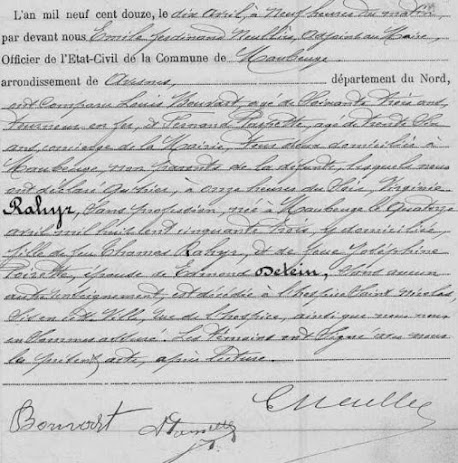 L'an mil neuf cent douze, le dix avril, à Neuf heures du matin,
par devant nous Emile Ferdinand adjoint au Maire,
Officier de l'Etat-Civil de la Commune de Maubeuge,
arrondissement de Avesnes département du Nord,
ont comparu Louis Bouvart, agé de Soixante trois ans,
tourneur en fer, et Fernand agé de trente
ans, concierge de la Mairie, tous deux domiciliés à
Maubeuge, non parents de la défunte, lesquels nous
ont déclaré qu'hier, à onze heures du Soir, Virginie
Rahyr, Sans profession, née à Maubeuge le quatorze
avril mil huit cent cinquante trois, y domiciliée,
fille de feu Thomas Rahyr, et de feue Joséphine
Poirette, épouse de Edmond Detein, Sans aucun
autre renseignement, est décédée à l'hospice Saint Nicolas,
Sis en cette Ville, rue de l'hospice, ainsi que nous nous
en Sommes assuré. Les témoins ont Signé avec nous
le présent acte, après lecture.
Bouvart